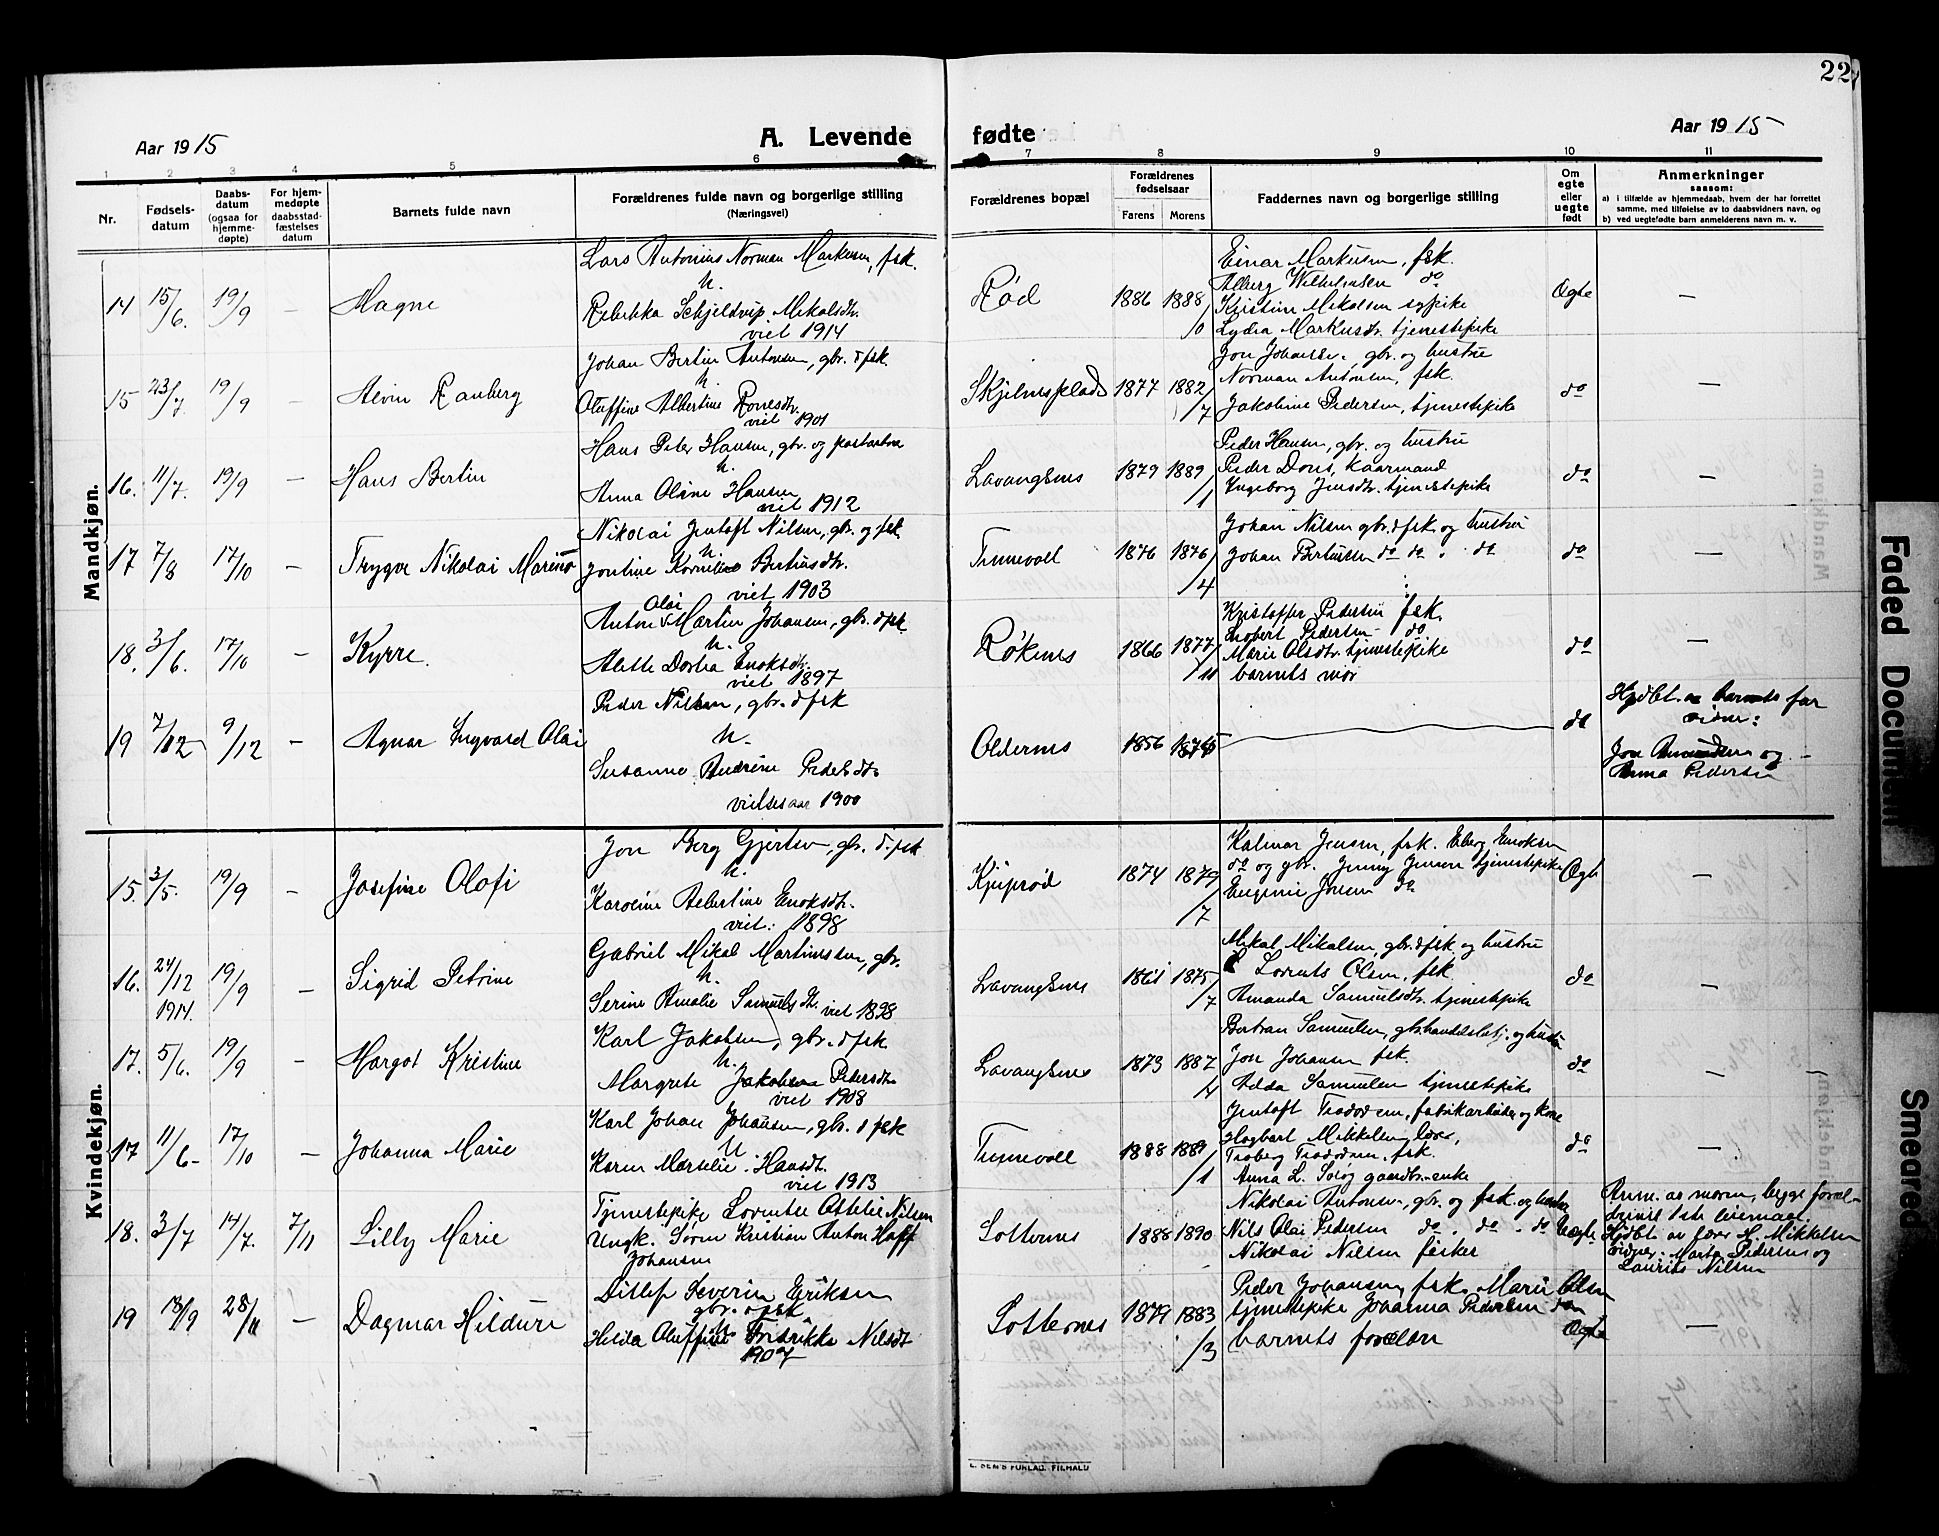 22
Aar 1915
A. Levende fødte
Aar 1915
1 2 3 4 5 6 7 8 9 10 11
Nr.
Fødsels-
datum
Daabs-
datum
(ogsaa for
hjemme-
døpte)
For hjem-
medøpte
daabsstad-
fæstelses
datum
Barnets fulde navn
Forældrenes fulde navn og borgerlige stilling
(Næringsvei)
Forældrenes bopæl
Forældrenes
fødselsaar
Farens
Morens
Faddernes navn og borgerlige stilling
Om
egte
eller
uegte
født
Anmerkninger
saasom:
a) i tilfælde av hjemmedaab, hvem der har forrettet
samme, med tilføielse av to daabsvidners navn, og
b) ved uegtefødte barn anmelderens navn m. v.
Mandkjøn.
14 15/6. 19/9 – Hagne
Lars Antonius Norman Markusen, fsk.
h.
Rebekka Schjeldvip Mikalsdtr.
viet 1914
Rød 1886 1888/10
Einar Markusen, fsk.
Alberg Wilhelmsen do
Kristine Mikalsen sypike
Lydia Markusdtr. tjenestepike
Ægte –
15 23/7. 19/9 – Alvin Ranberg
Johan Bertin Antonsen, gbr. d fsk.
h.
Oluffine Albertine Ronesdtr.
viet 1901
Skjelnesplads 1877 1882/7
Jon Johanse. gbr. og hustru
Norman Antonsen, fsk.
Jakobine Pedersen, tjenestepike
do –
16. 11/7. 19/9 – Hans Bertin
Hans Peter Hansen, gbr. og
h.
Anna Oline Hansen
viet 1912
Lavangsnes 1879 1889/1
Peder Hansen, gbr. og hustru
Peder Dons, kaarmand
Ingeborg Jensdtr. tjenestepike
do –
17 7/8 17/10 – Trygve Nikolai Marino
Nikolai Jentoft Nilsen, gbr. og fsk
h.
Jontine Kornilie Bertiusdtr.
viet 1903
Tennevoll 1876 1876/4
Johan Nilsen gbr. d fsk og hustru
Johan Bertiussen do do . do
do –
18. 3/6. 17/10 – Kyrre.
Anton Olai Martin Johansen, gbr. d fsk.
h.
Alette Dortea Enoksdtr.
viet 1897
Røkenes 1866 1877/11
Kristoffer Pedersen fsk.
Pedersen do
Marie Olsdtr. tjenestepike
barnets mor
do –
19 7/12 9/12 – Agnar Ingvard Olai
Peder Nilsen, gbr. d fsk
h.
Susanne Andrine Pedersdtr
vielsesaar 1900
Oldernes 1856
do
Hjdbt. a barnets far
vidner:
Jon og
Anna Pedersen
Kvindekjøn.
15. 3/5. 19/9 – Josefine Olofi
Jon Berg Gjertsen, gbr. d. fsk
h.
Karoline Albertine Enoksdtr.
viet: 1898
Kjeiprød 1874 1879/7
Kalmar Jensen, fsk. Eberg Enoksen
do og gbr. Jenny Jensen tjenestepike
Eugenie Jensen do
Ægte –
16. 24/12 1914. 19/9 – Sigrid Petrine
Gabriel Mikal Martinussen, gbr.
h.
Serine Amalie Samuelsdtr. viet 1898
Lavangsnes 1861 1875/7
Mikal Mikalsen, gbr. d fsk og hustru
Lorents Olsen, fsk.
Amanda Samuelsdtr. tjenestepike
do –
17. 5/6. 19/9 – Margot Kristine
Karl Jakobsen, gbr. d fsk
h.
Margrete Jakobsen Pedersdtr
viet 1908
Lavangsnes 1873 1887/4
Bertran Samuelsen, gbr. handelsbetj. og hustru
Jon Johansen fsk.
Alda Samuelsen tjenestepike
do –
17 11/6- 17/10 – Johanna Marie
Karl Johan Johansen, gbr. d fsk
h.
Karen Marselie Hansdt.
viet 1913
Tennevoll 1888 1889/1
Jentoft Teodorsen, fabrikarbeider og kone
Hagbart Mikkelsen lærer,
Teodorsen, fsk.
Anna L. Sørøg gaardbr.enke
do –
18. 3/7 14/7. 7/11 Lilly Marie
Tjenestepike Lorentse Ottelie Nilsen
Ungk. Sören Kristian Anton Hoff
Johansen
Sotternes 1888 1890
Nikolai Antonsen, gbr. og fsk. og hustru
Nils Olai Pedersen do . do . do
Nikolai Nilsen fisker
Uægte
Anm. av moren, begge foræl-
drenes 1ste leiermaal
Hjdbt. av lærer H. Mikkelsen
vidner: Marta Pedersen og
Laurits Nilsen
19 18/9 28/11 – Dagmar Hildure
Ditlef Severin Eriksen
gbr. d fsk
h.
Hilda Oluffine Fredrikke Nilsdt
1907
Sotternes 1879 1883/3
Peder Johansen, fsk. Marie Olsen
tjenestepike Johanna Pedersen do
barnets forældre
Ægte –
E. SEM'S FORLAG. FR.HALD
Faded Document
Smeared